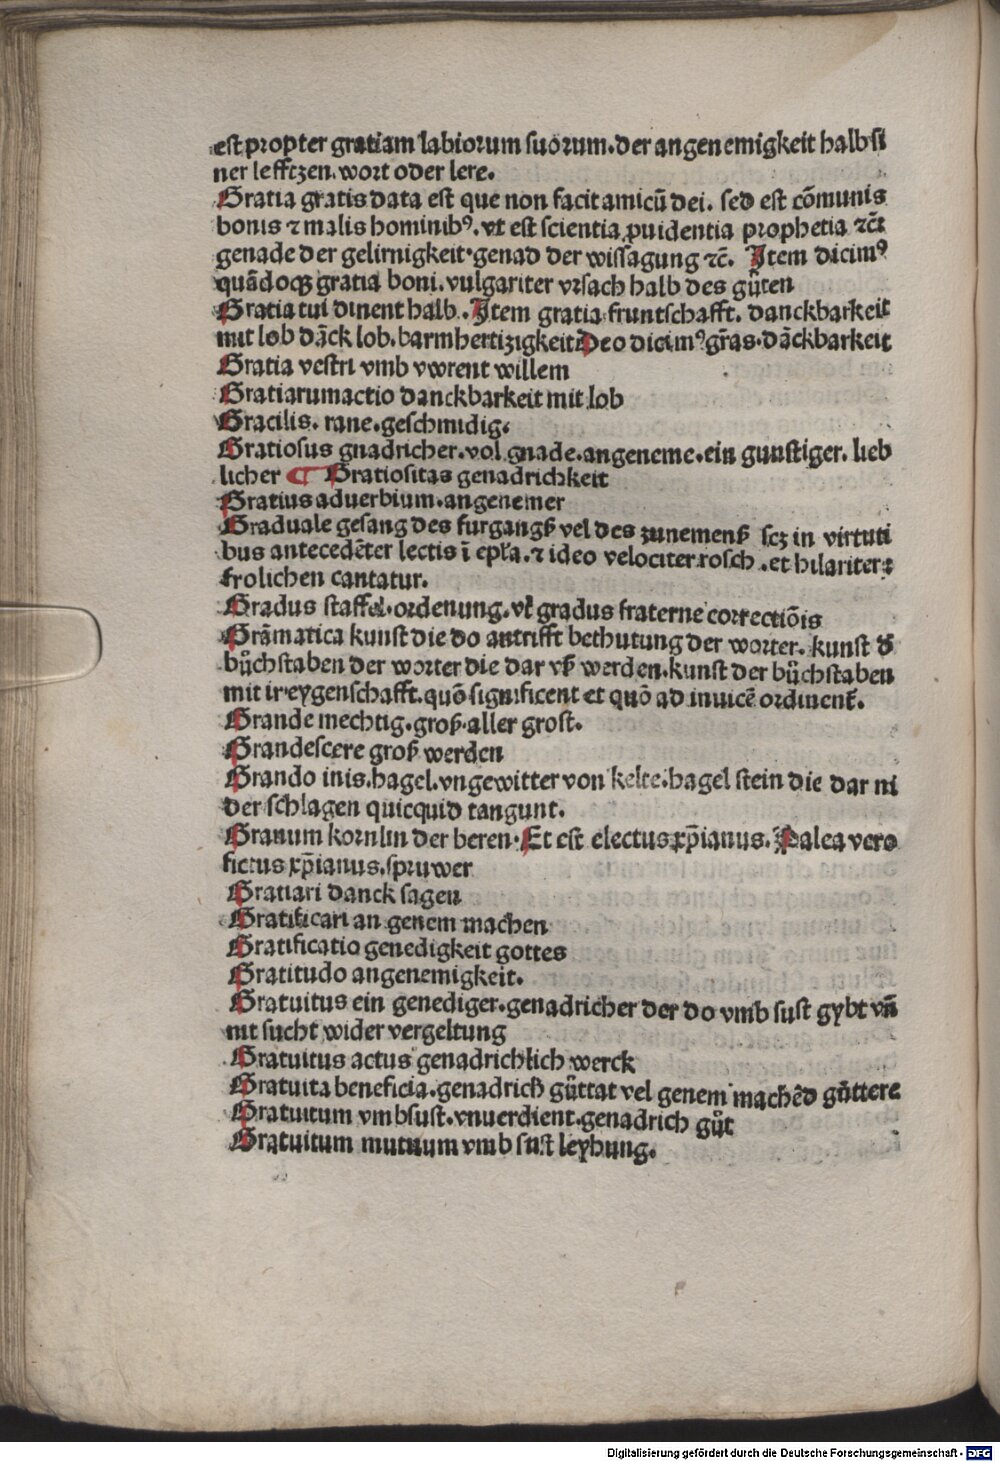 est propter gratiam labiorum suorum. der angenemigkeit halb si
ner lefftzen. wort oder lere.
Gratia gratis data est que non facit amicū dei. sed est cōmunis
bonis ⁊ malis hominibꝰ. vt est scientia ꝓuidentia prophetia ⁊cͣ
genade der gelirnigkeit. genad der wissagung ⁊c̄. Item dicimꝰ
quādoqꝫ gratia boni. vulgariter vrsach halb des guͤten
Gratia tui dinent halb. Item gratia fruntschafft. danckbarkeit
mit lob dāck lob. barmhertizigkeit Deo dicimꝰ gr̄as. dāckbarkeit
Gratia vestri vmb vwrent willem
Gratiarumactio danckbarkeit mit lob
Gracilis. rane. geschmidig.
Gratiosus gnadricher. vol gnade. angeneme. ein gunstiger. lieb
licher ¶ Gratiositas genadrichkeit
Gratius aduerbium. angenemer
Graduale gesang des furgangß vel des zunemenß scz in virtuti
bus antecedēter lectis ī epl̄a. ⁊ ideo velociter rosch. et hilariter:
frolichen cantatur.
Gradus staffel. ordenung. vt gradus fraterne correctiōis
Grāmatica kunst die do antrifft bethutung der worter. kunst d̄
buͤchstaben der worter die dar vß werden. kunst der buͤchstaben
mit ir eygenschafft. quō significent et quō ad inuicē ordinent̄.
Grande mechtig. groß. aller grost.
Grandescere groß werden
Grando inis. hagel. vngewitter von kelte. hagel stein die dar ni
der schlagen quicquid tangunt.
Granum kornlin der beren. Et est electus xp̄ianus. Palea vero
fictus xp̄ianus. spruwer
Gratiari danck sagen
Gratificari an genem machen
Gratificatio genedigkeit gottes
Gratitudo angenemigkeit.
Gratuitus ein genediger. genadricher der do vmb sust gybt vn̄
nit sucht wider vergeltung
Gratuitus actus genadrichlich werck
Gratuita beneficia. genadrich guͤttat vel genem machēd guͤttere
Gratuitum vmbsust. vnuerdient. genadrich guͤt
Gratuitum mutuum vmb sust leyhung.
Digitalisierung gefördert durch die Deutsche Forschungsgemeinschaft - DFG